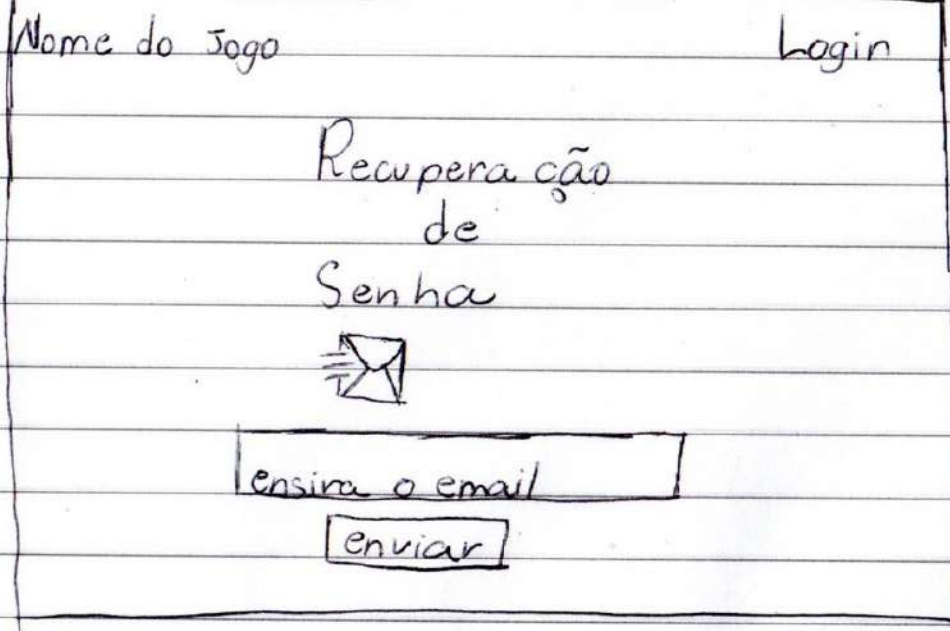 Nome do Jogo
Login
Recuperação
de
Senha
ensira o email
enviar